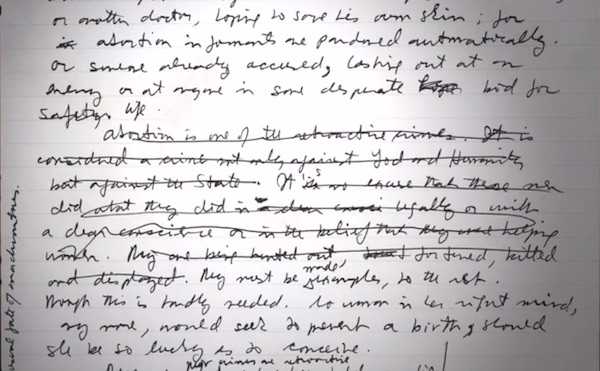 or another doctor, hoping to save his own skin; for
abortion informants are pardoned automatically.
or someone already accused, lashing out at an
enemy or at anyone in some desperate bid for
safety. life.
abortion is one of the retroactive crimes. It is
considered a crime not only against God and Humanity
but against the State. It is no excuse that these men
did what they did in legally or with
a clear conscience or in the belief that they were helping
women. They are being hunted out, tortured, killed
and displayed. They must be made examples, to the rest.
Though this is hardly needed. No woman in her right mind,
any more, would seek to prevent a birth, should
she be so lucky as to conceive.
crimes are retroactive